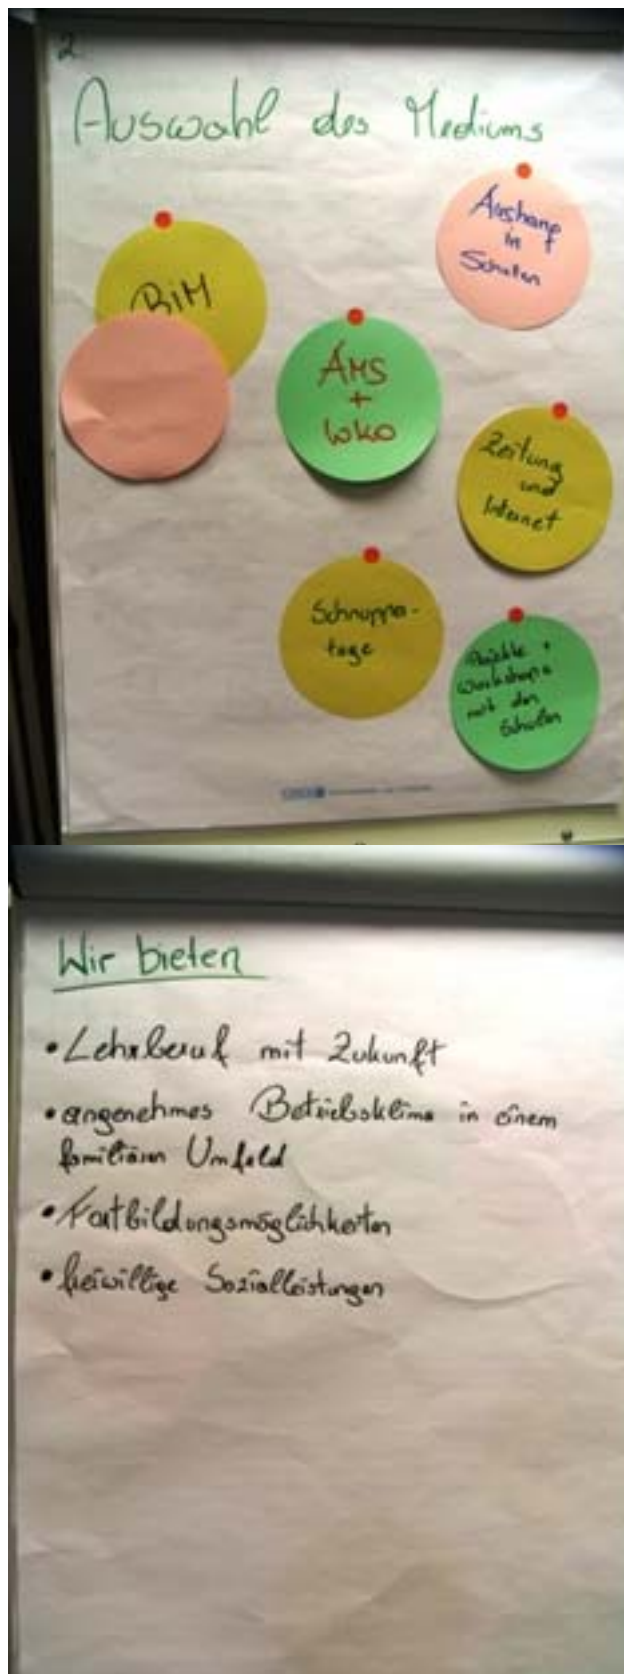 2
Auswahl des Mediums
Aushang
in
Schulen
BIM
AMS
+
WKO
Zeitung
und
Internet
Schnupper-
tage
Projekte +
Workshops
mit den
Schulen
Wir bieten
• Lehrberuf mit Zukunft
• angenehmes Betriebsklima in einem
familiären Umfeld
• Fortbildungsmöglichkeiten
• freiwillige Sozialleistungen